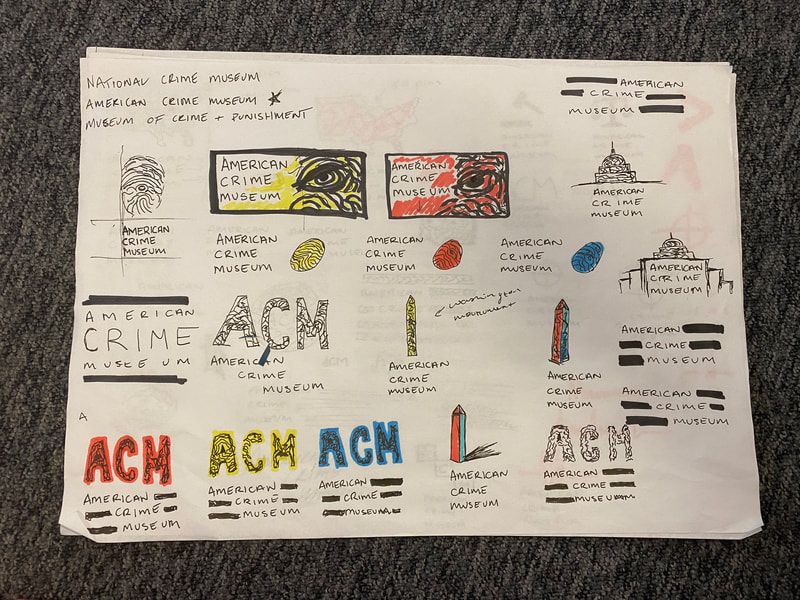 NATIONAL CRIME MUSEUM
AMERICAN CRIME MUSEUM
MUSEUM OF CRIME + PUNISHMENT
AMERICAN
CRIME
MUSEUM
AMERICAN
CRIME
MUSEUM
AMERICAN
CRIME
MUSEUM
AMERICAN
CRIME
MUSEUM
AMERICAN
CRIME
MUSEUM
AMERICAN
CRIME
MUSEUM
AMERICAN
CRIME
MUSEUM
AMERICAN
CRIME
MUSEUM
AMERICAN
CRIME
MUSEUM
AMERICAN
CRIME
MUSEUM
ACM
AMERICAN
CRIME
MUSEUM
washington
monument
AMERICAN
CRIME
MUSEUM
AMERICAN
CRIME
MUSEUM
AMERICAN
CRIME
MUSEUM
AMERICAN
CRIME
MUSEUM
A
ACM
AMERICAN
CRIME
MUSEUM
ACM
AMERICAN
CRIME
MUSEUM
ACM
AMERICAN
CRIME
MUSEUM
AMERICAN
CRIME
MUSEUM
ACM
AMERICAN
CRIME
MUSEUM